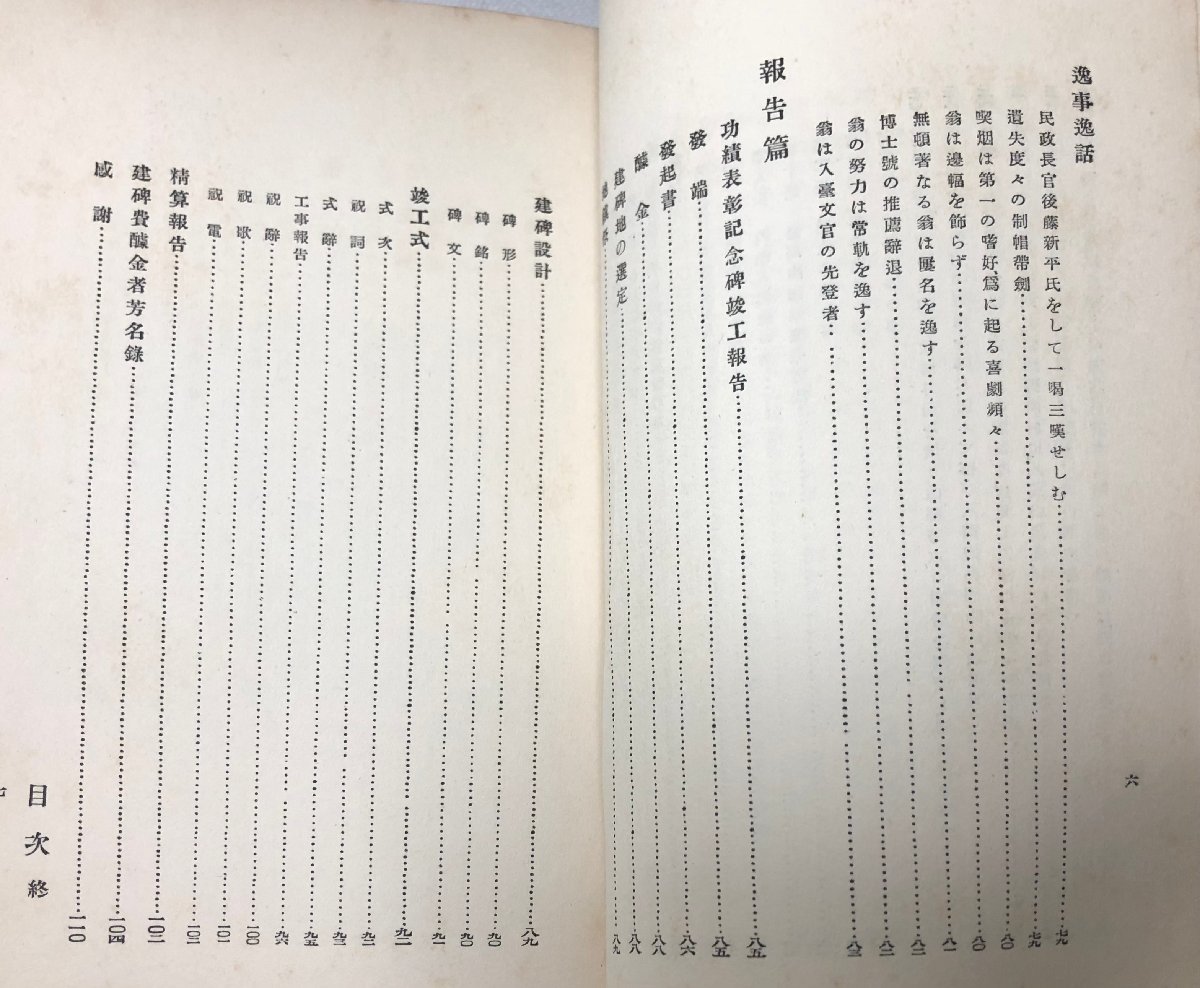 逸事逸話
民政長官後藤新平氏をして一喝三嘆せしむ……七九
遺失度々の制帽帶劍……七九
喫烟は第一の嗜好、爲に起る喜劇頻々……八〇
翁は邊幅を飾らず……八〇
無頓著なる翁は匪名を逸す……八一
博士號の推薦辭退……八二
翁の努力は常軌を逸す……八二
翁は入臺文官の先登者……八三
報告篇
功績表彰記念碑竣工報告……八五
發端……八五
發起書……八六
醵金……八八
建碑地の選定……八八
……八九
六
建碑設計……八九
碑形……九〇
碑銘……九〇
碑文……九一
竣工式……九二
式次……九二
祝詞……九三
式辭……九三
工事報告……九五
祝辭……九六
祝歌……一〇〇
祝電……一〇一
精算報告……一〇二
建碑費醵金者芳名錄……一〇四
感謝……一一〇
目次終